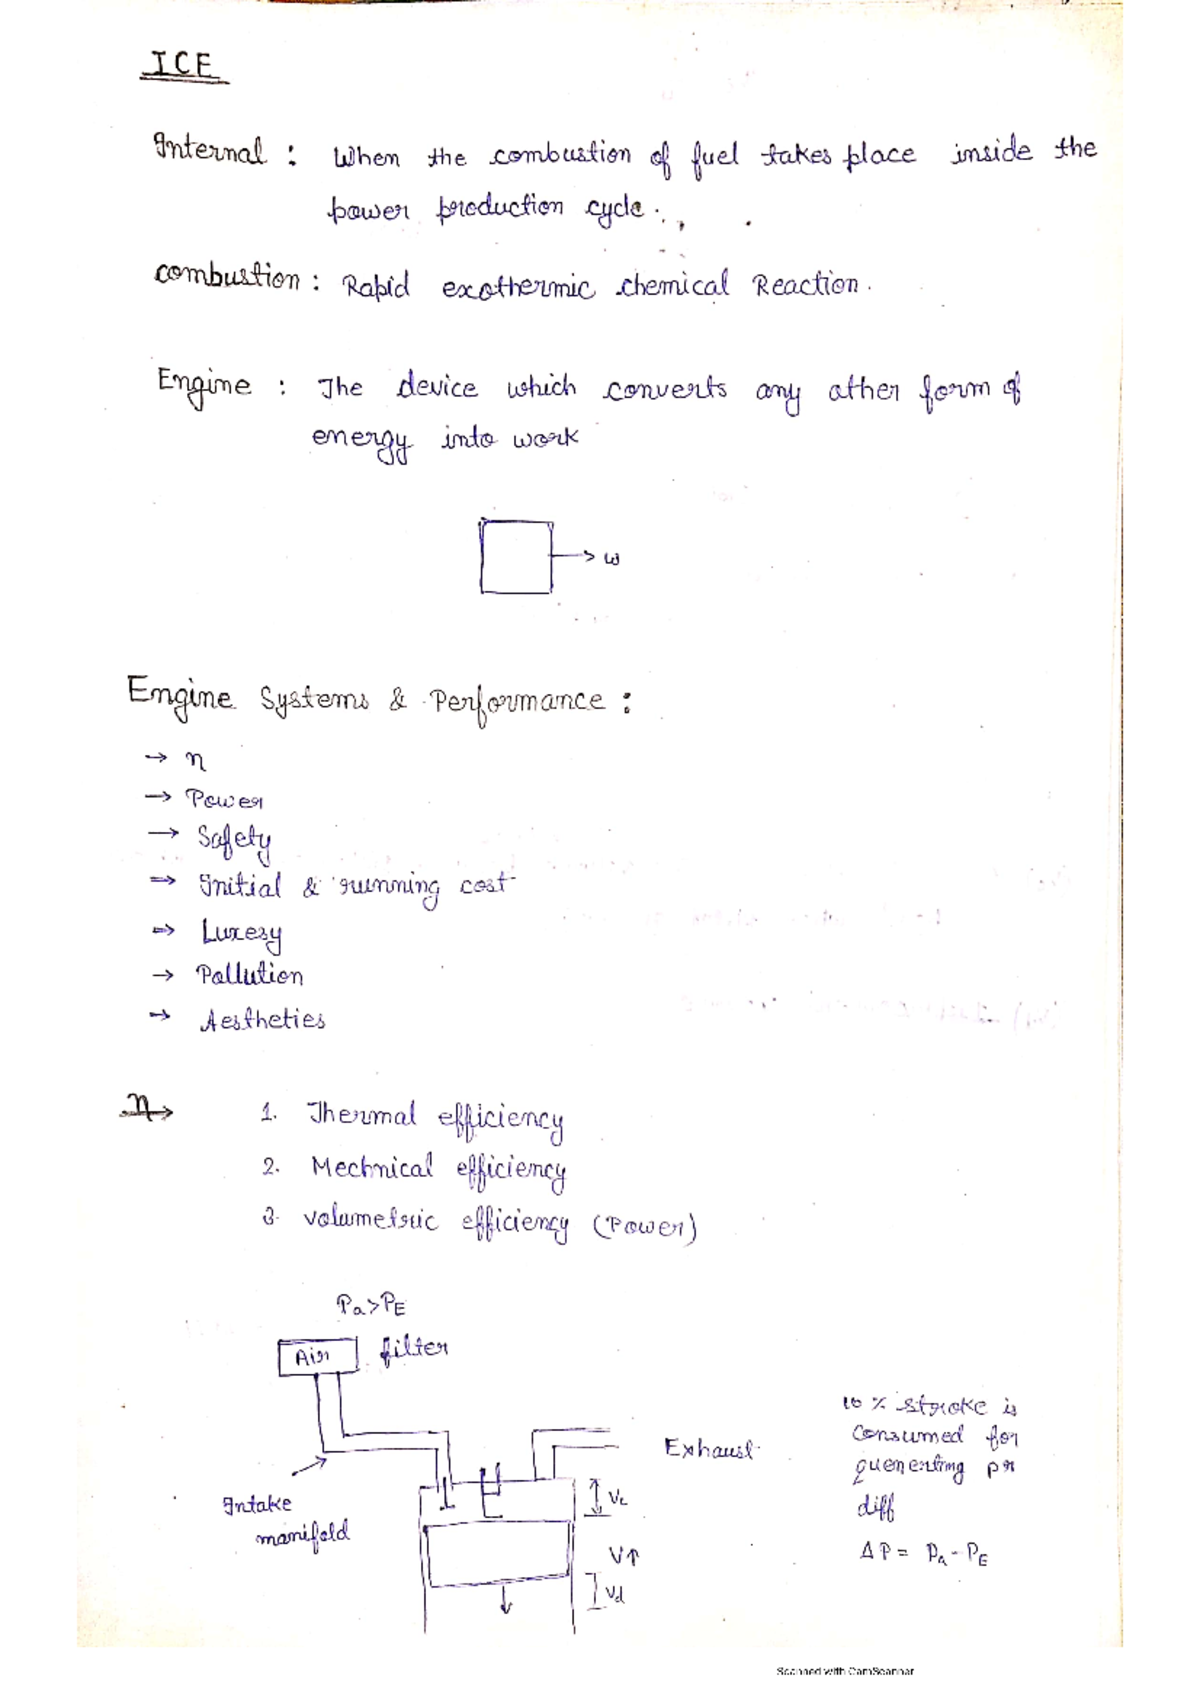 ICE
Internal : When the combustion of fuel takes place inside the
power production cycle.
combustion : Rapid exothermic chemical Reaction.
Engine : The device which converts any other form of
energy into work
→ W
Engine Systems & Performance :
→ η
→ Power
→ Safety
→ Initial & running cost
→ Luxesy
→ Pollution
→ Aestheties
η→ 1. Thermal efficiency
2. Mechnical efficiency
3. volumetric efficiency (Power)
Pa>PE
Air filter
Intake
manifold
Exhaust
Vc
V↑
Vd
10 % stroke is
consumed for
quenerting pr
diff
ΔP = Pa - PE
Scanned with CamScanner